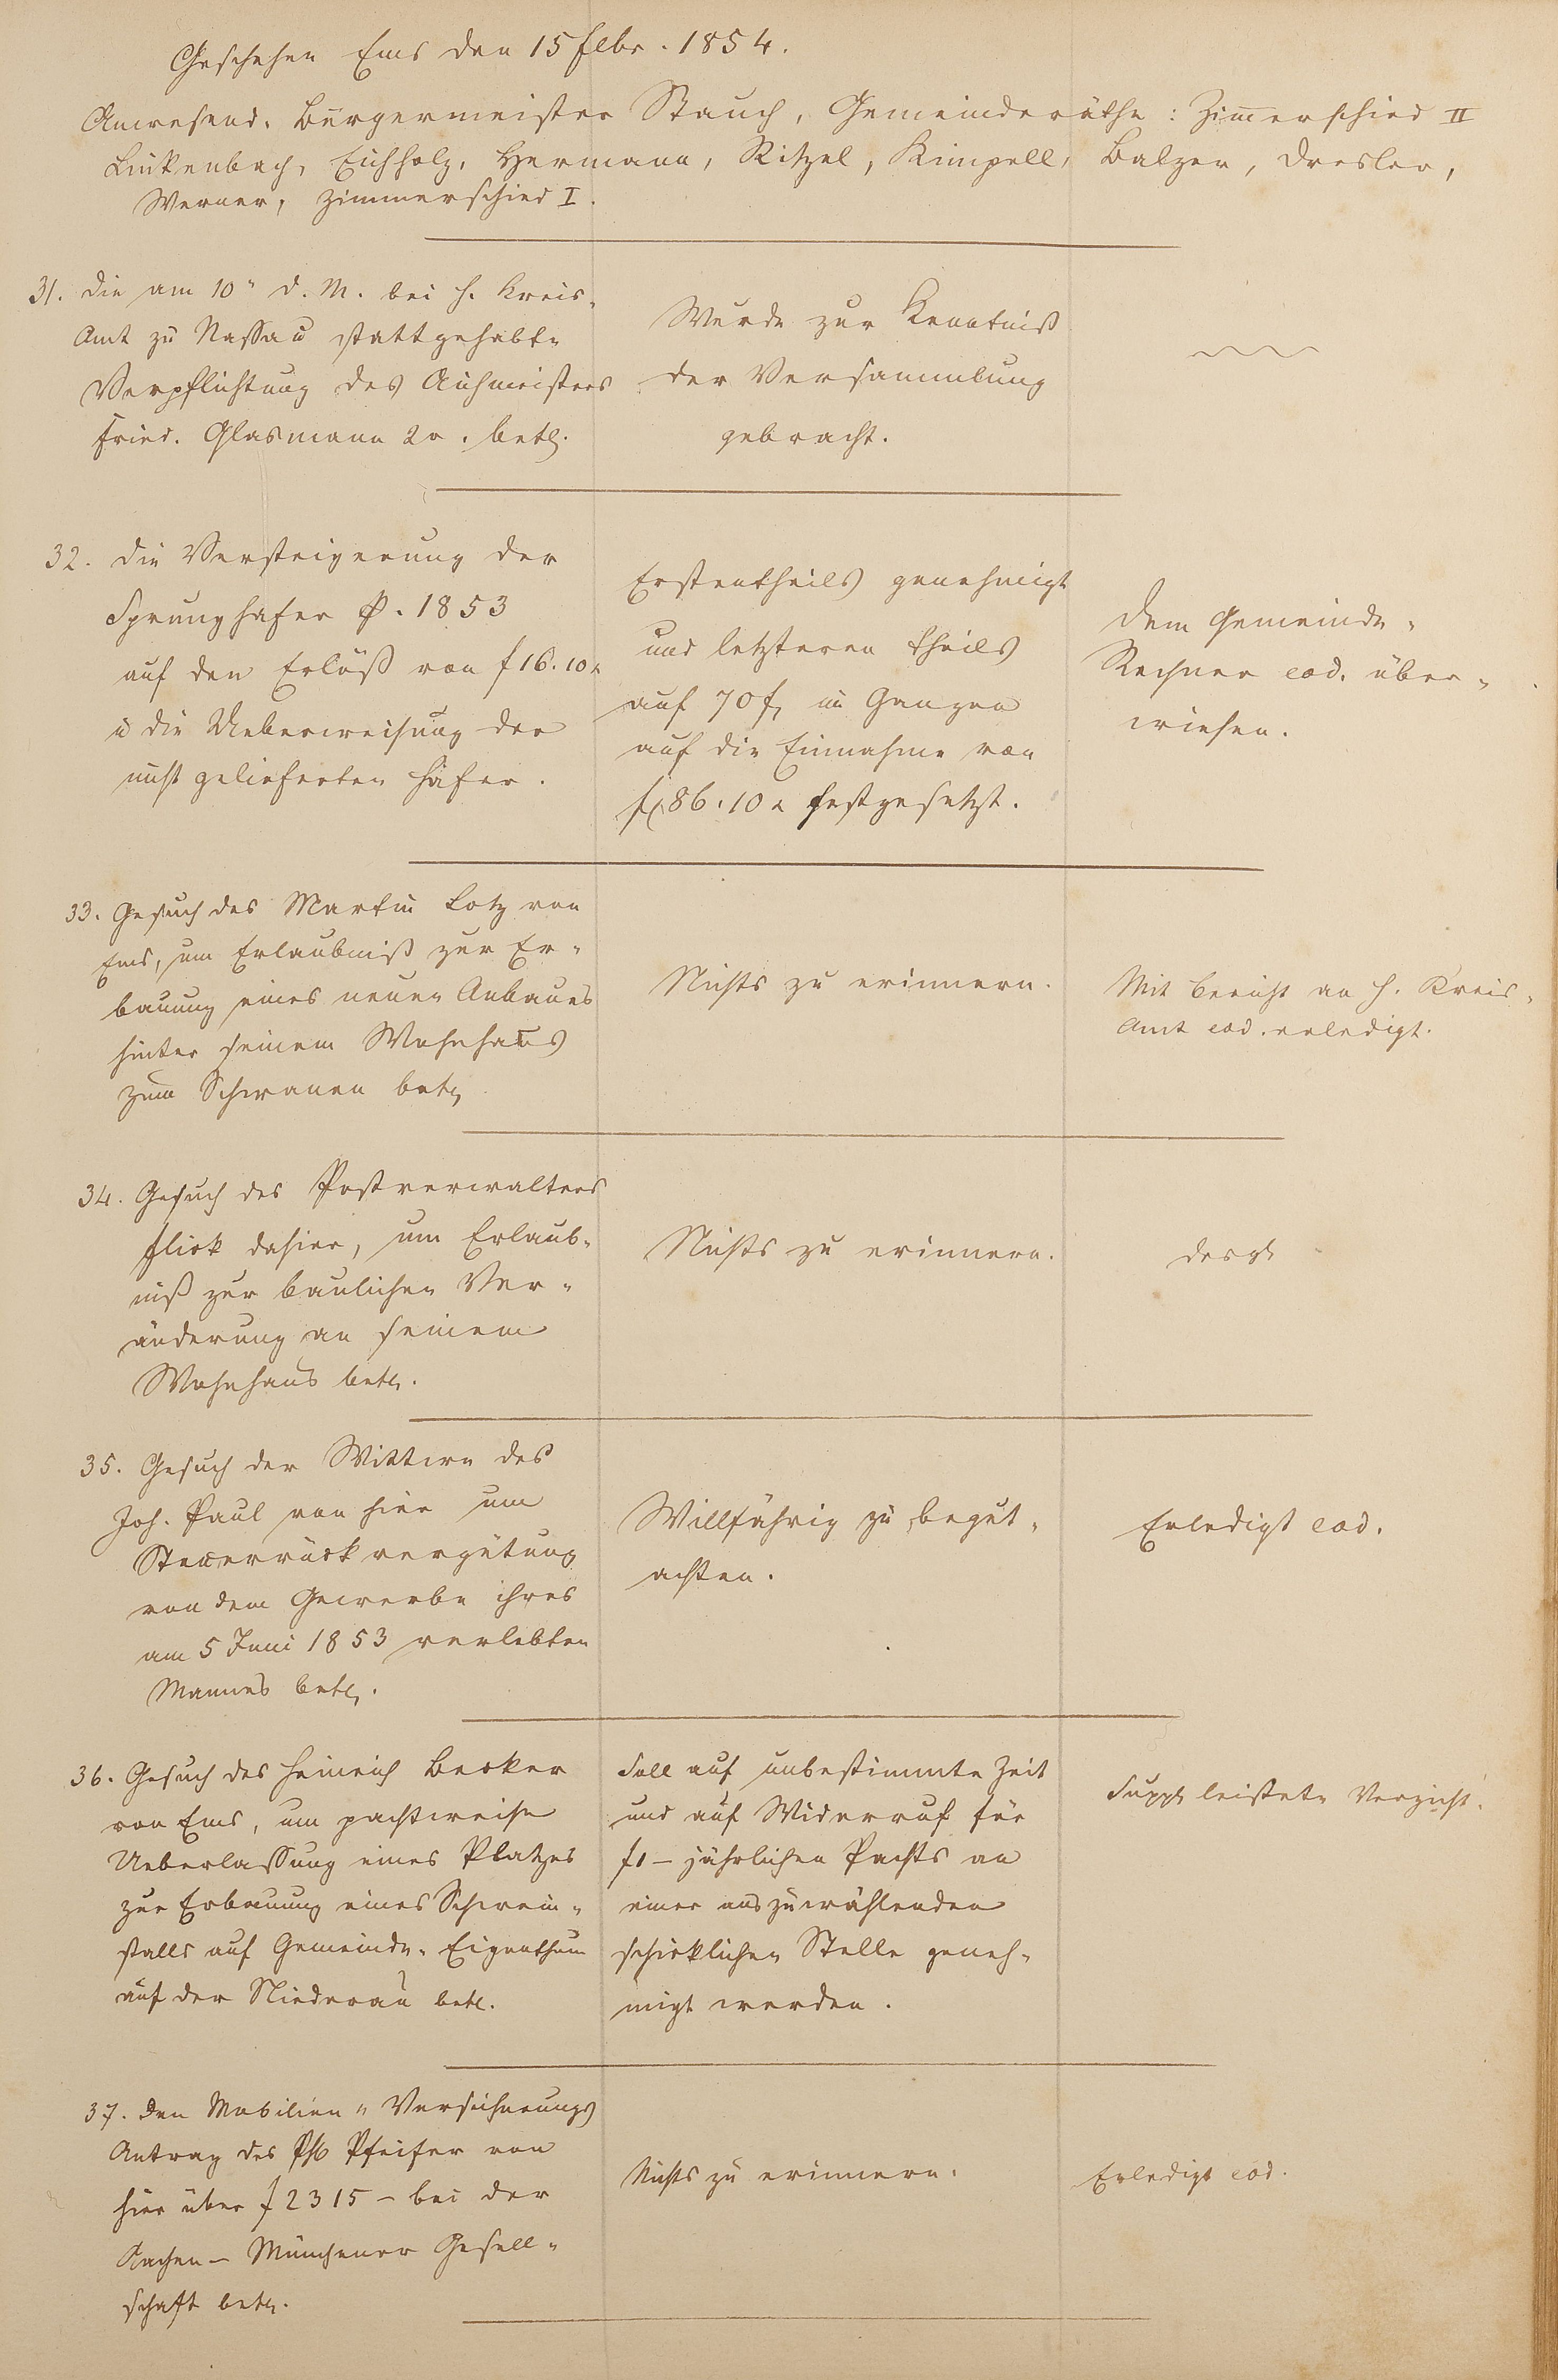 Geschehen Ems den 15 Febr. 1854.
Anwesend. Bürgermeister Stauch, Gemeinderäthe: Zimerschied II
Linkenbach, Eichholz, Hermann, Ritzel, Kimpell, Balzer, Dresler,
Werner, Zimmerschied I.
31. Die am 10" d. M. bei H. Kreis-
Amt zu Nassau stattgehabte
Verpflichtung des Aichmeisters
Fried. Glasmann 2r. betr.
Wurde zur Kenntniß
der Versammlung
gebracht.
32. Die Versteigerung der
Sprunghafer p. 1853
auf den Erlöß von f 16. 10 x
u die Ueberweisung der
nicht gelieferten Hafer.
Erstentheils genehmigt
und letzteren theils
auf 70 f, im Ganzen
auf die Einnahme von
f 86. 10 x festgesetzt.
Dem Gemeinde-
Rechner eod. über-
wiesen.
33. Gesuch des Martin Lotz von
Ems, um Erlaubniß zur Er-
bauung eines neuen Anbaues
hinter seinem Wohnhaus
zum Schwanen betr
Nichts zu erinnern.
Mit Bericht an H. Kreis-
Amt eod. erledigt.
34. Gesuch des Postverwalters
Flick dahier, um Erlaub-
niß zur baulichen Ver-
änderung an seinem
Wohnhaus betr.
Nichts zu erinnern.
desgl
35. Gesuch der Wittwe des
Joh. Paul von hier um
Steuerrückvergütung
von dem Gewerbe ihres
am 5 Juni 1853 verlebten
Mannes betr.
Willfährig zu begut-
achten.
Erledigt eod.
36. Gesuch des Heinrich Becker
von Ems, um pachtweise
Ueberlassung eines Platzes
zur Erbauung eines Schwein-
stalls auf Gemeinde-Eigenthum
auf der Niederau betr.
Soll auf unbestimmte Zeit
und auf Widerruf für
f 1 – jährlichen Pachts an
einer auszuwählenden
schicklichen Stelle geneh-
migt werden.
Suppl leistete Verzicht.
37. Den Mobilien-Versicherungs
Antrag des Ph Pfeifer von
hier über f 2315 – bei der
Aachen-Münchener Gesell-
schaft betr.
Nichts zu erinnern.
Erledigt eod.